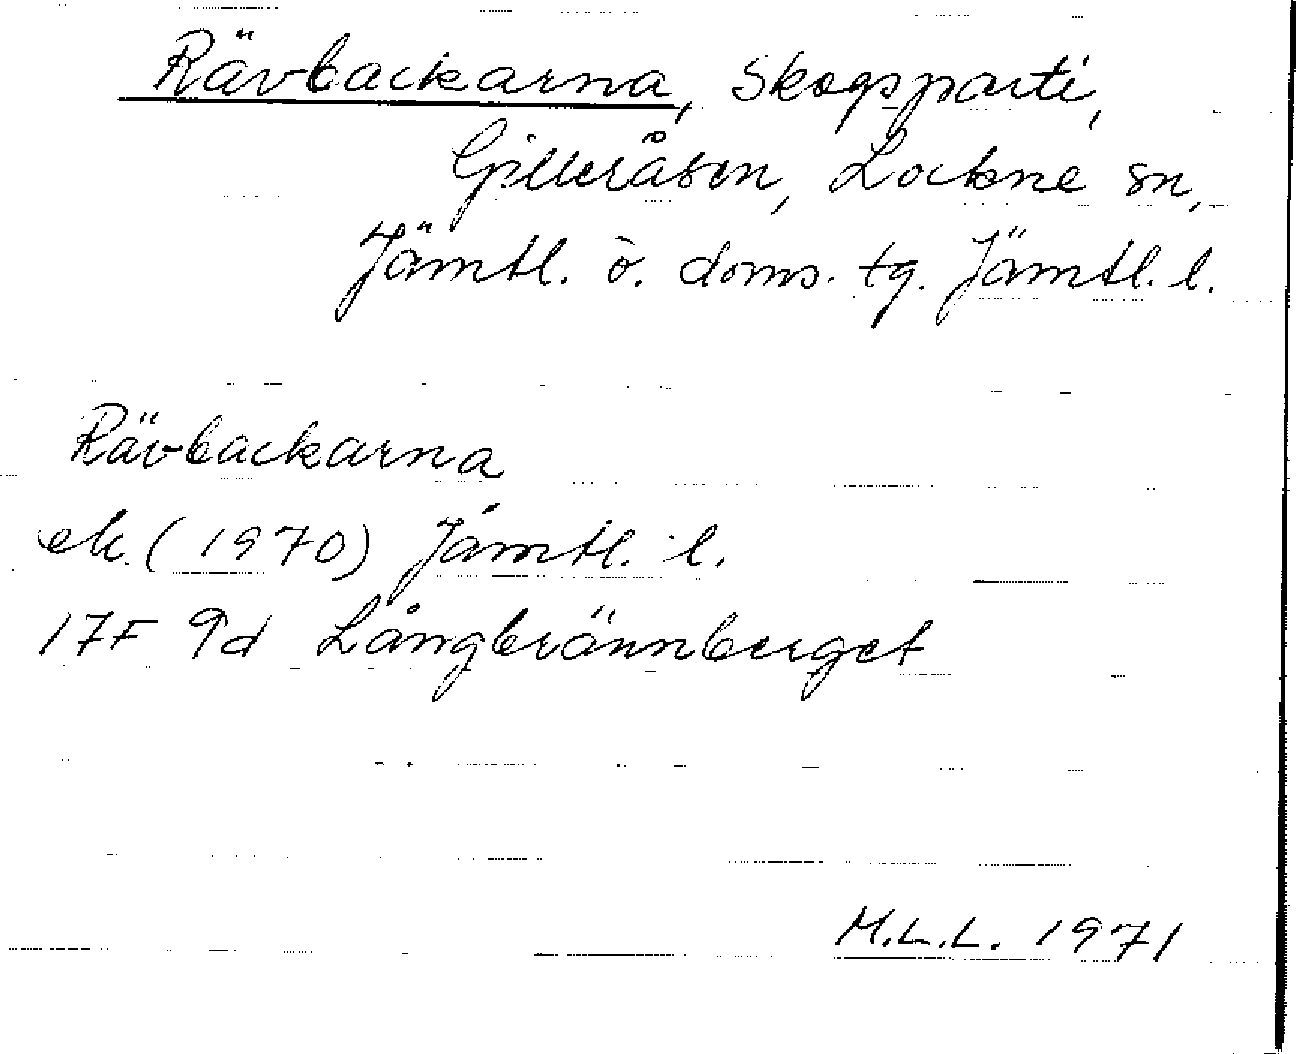 Rävbackarna, Skogsparti,
Gilleråsen, Lockne sn,
Jämtl. ö. doms. tg. Jämtl. l.
Rävbackarna
ek. (1970) Jämtl. l.
17F 9d Långbrännberget
M.L.L. 1971